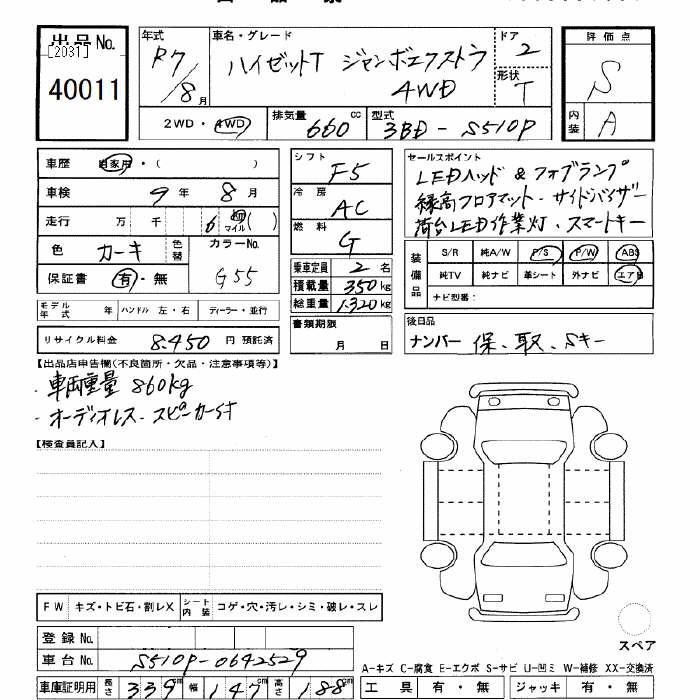 出品No.
[2031]
40011
年式
R7/8月
車名・グレード
ハイゼットT ジャンボエクストラ
4WD
ドア
2
形状
T
評価点
S
内装
A
2WD・4WD
排気量
660cc
型式
3BD-S510P
車歴
自家用・( )
車検
9年8月
走行
万 千 6 km マイル( )
色
カーキ
色替
カラーNo.
G55
保証書
有・無
モデル年式 年
ハンドル 左・右
ディーラー・並行
リサイクル料金 8,450円 預託済
シフト
F5
冷房
AC
燃料
G
乗車定員 2名
積載量 350kg
総重量 1,320kg
書類期限
月 日
セールスポイント
LEDヘッド & フォグランプ
縁高フロアマット・サイドバイザー
荷台LED作業灯・スマートキー
装備品
S/R 純A/W P/S P/W ABS
純TV 純ナビ 革シート 外ナビ エアB
ナビ型番:
後日品
ナンバー 保、取、Sキー
【出品店申告欄(不良箇所・欠品・注意事項等)】
・車両重量 860kg
・オーディオレス・スピーカー付
【検査員記入】
FW キズ・トビ石・割レX
シート内装 コゲ・穴・汚レ・シミ・破レ・スレ
登録No.
車台No. S510P-0642529
車庫証明用 長さ 339cm 幅 147cm 高さ 188cm
スペア
A-キズ C-腐食 E-エクボ S-サビ U-凹ミ W-補修 XX-交換済
工具 有・無 ジャッキ 有・無